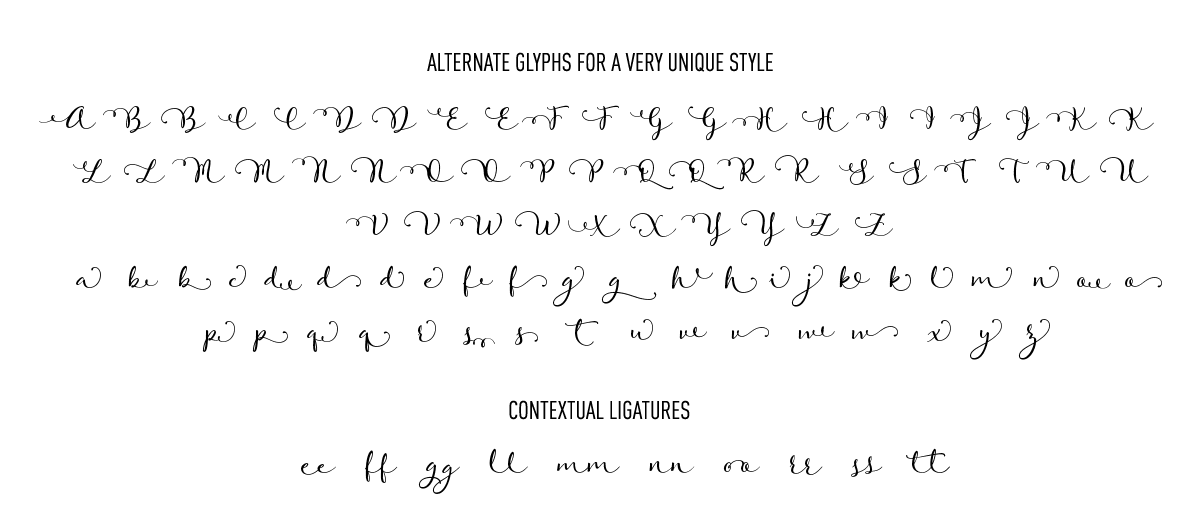 ALTERNATE GLYPHS FOR A VERY UNIQUE STYLE
A B B C C D D E E F F G G H H I I J J K K
L L M M N N O O P P Q Q R R S S T T U U
V V W W X X Y Y Z Z
a b b c d d d e f f g g h h i j k k l m n o o
p p q q r s s t u v v w w x y z
CONTEXTUAL LIGATURES
ee ff gg ll mm nn oo rr ss tt